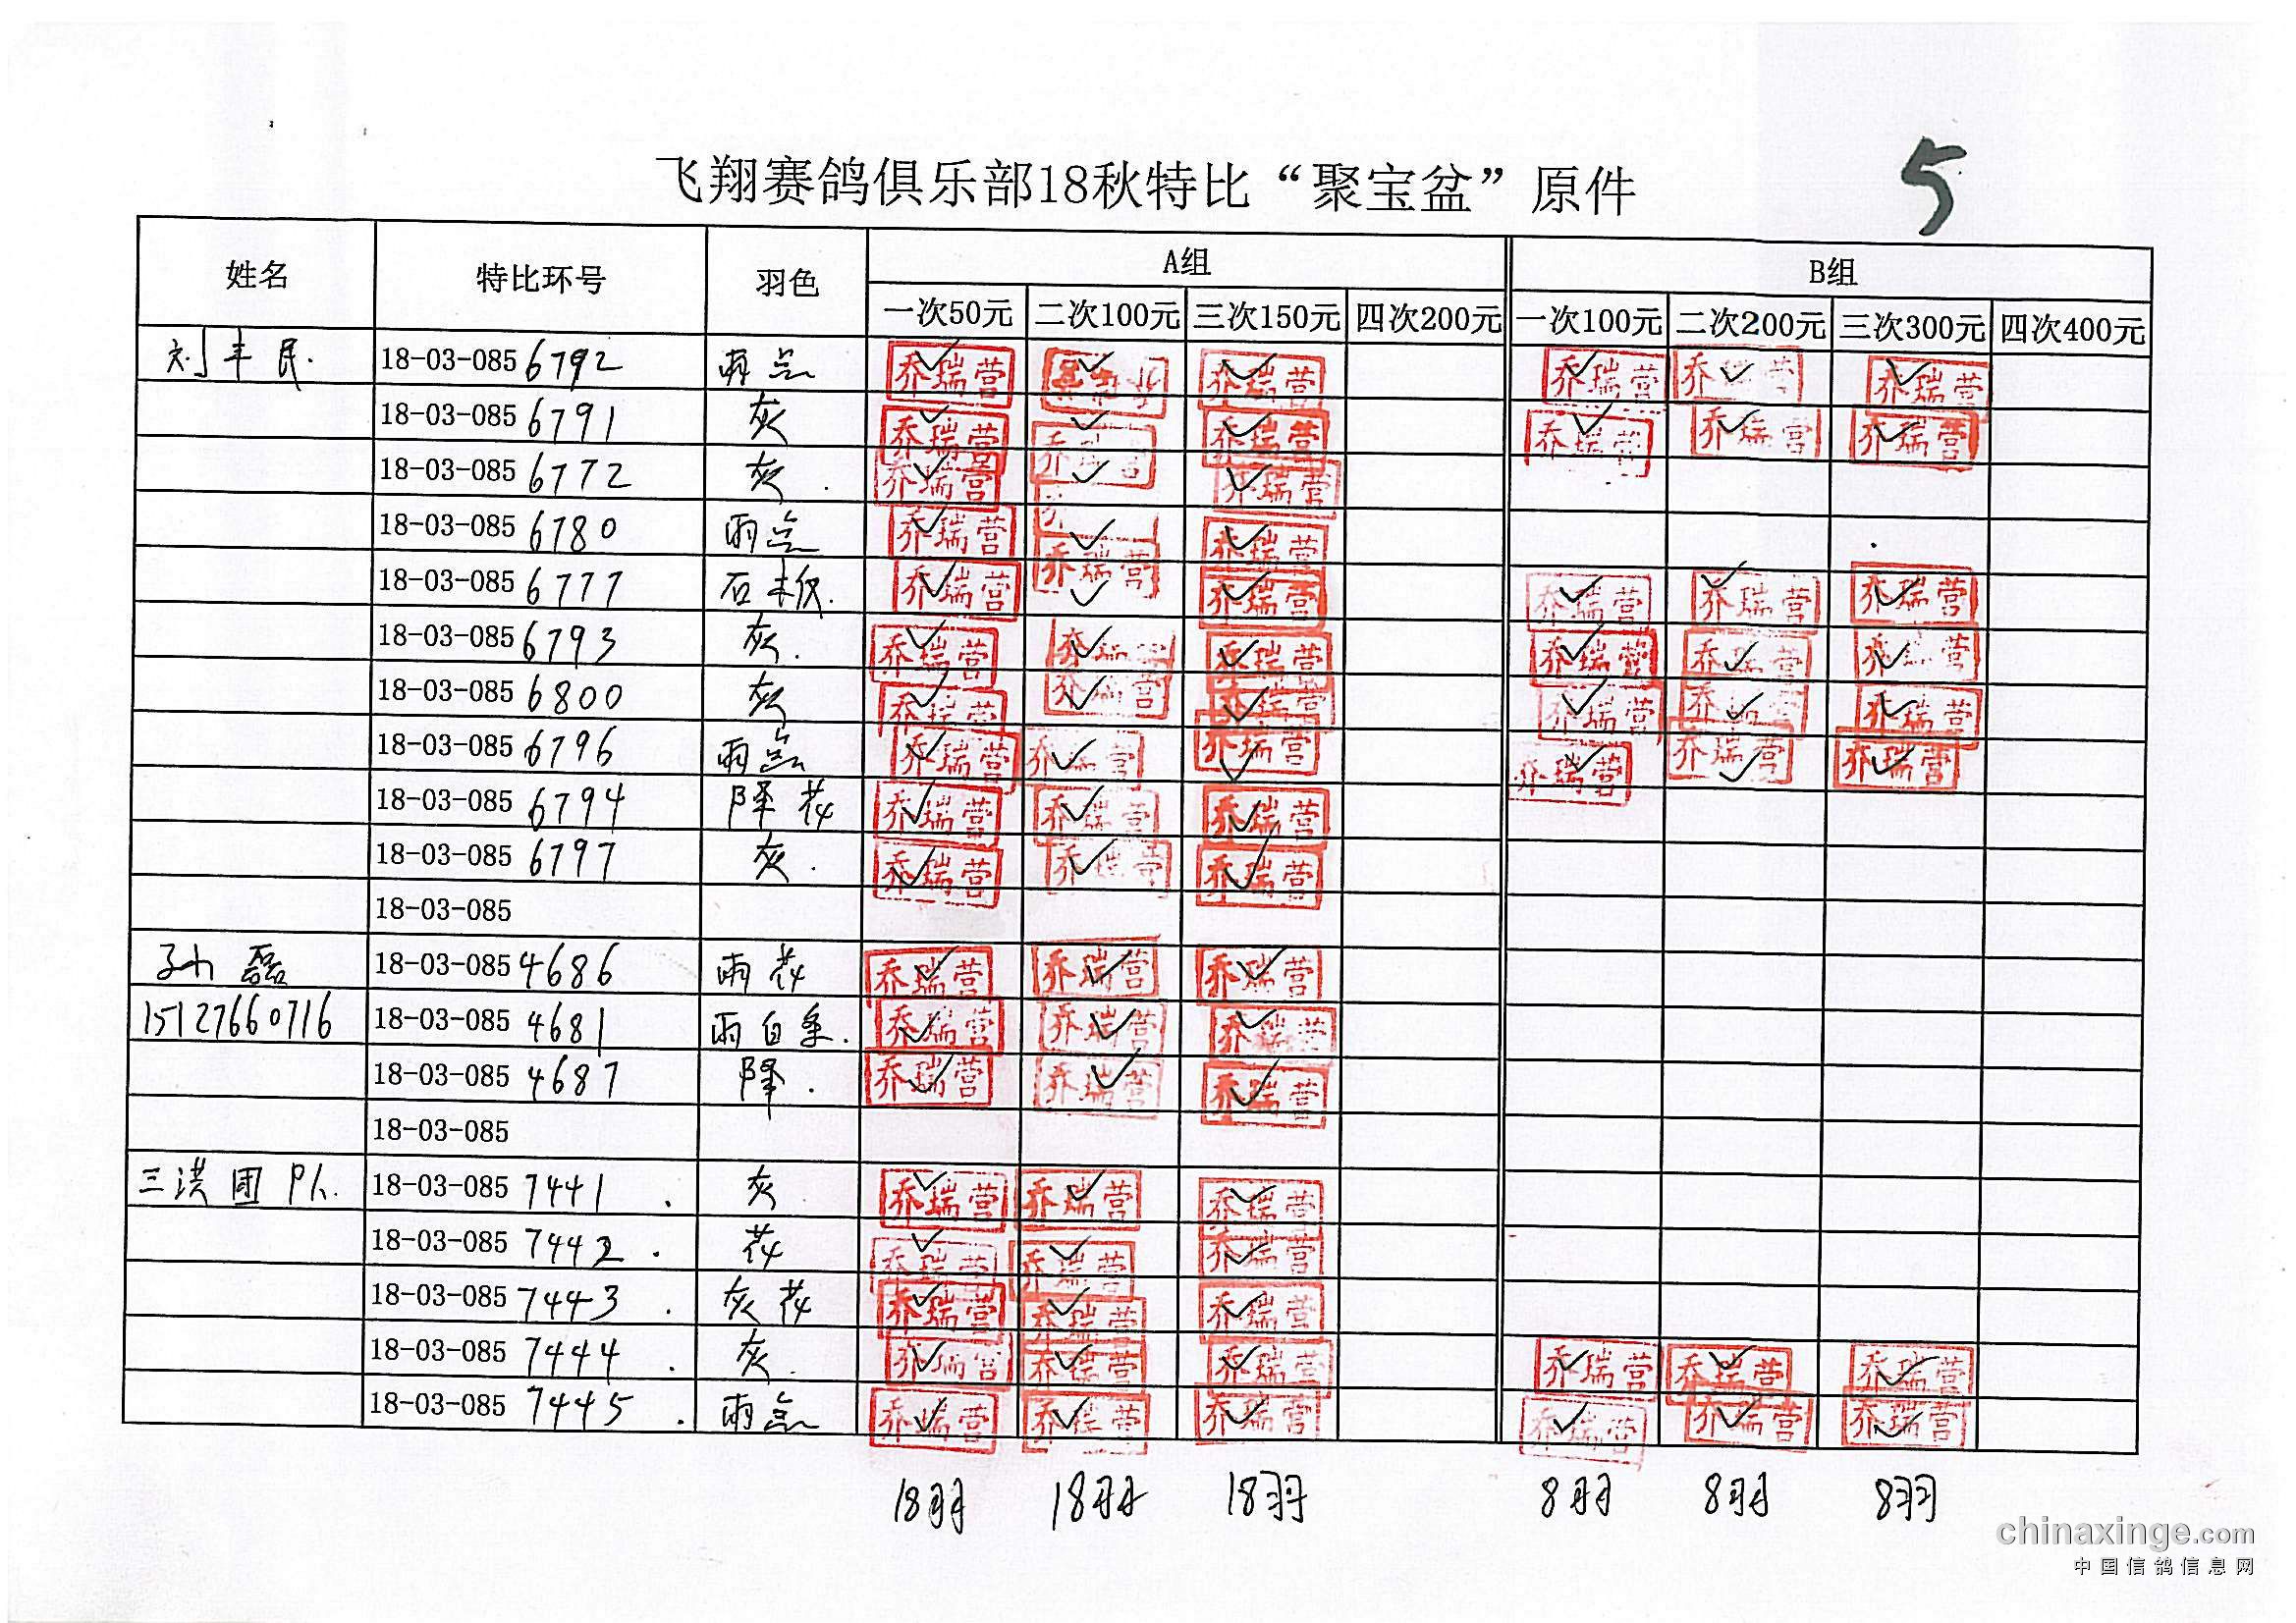 飞翔赛鸽俱乐部18秋特比“聚宝盆”原件 5
姓名 特比环号 羽色 A组 B组
一次50元 二次100元 三次150元 四次200元 一次100元 二次200元 三次300元 四次400元
刘丰民. 18-03-085 6792 雨点 乔瑞营 乔瑞营 乔瑞营 乔瑞营 乔瑞营
18-03-085 6791 灰 乔瑞营 乔瑞营 乔瑞营 乔瑞营 乔瑞营 乔瑞营
18-03-085 6772 灰. 乔瑞营 乔瑞营
18-03-085 6780 雨点 乔瑞营 乔瑞营 乔瑞营
18-03-085 6777 石板. 乔瑞营 乔瑞营 乔瑞营 乔瑞营 乔瑞营
18-03-085 6793 灰. 乔瑞营 乔瑞营 乔瑞营 乔瑞营 乔瑞营 乔瑞营
18-03-085 6800 灰 乔瑞营 乔瑞营 乔瑞营 乔瑞营 乔瑞营 乔瑞营
18-03-085 6796 雨点 乔瑞营 乔瑞营 乔瑞营 乔瑞营 乔瑞营 乔瑞营
18-03-085 6794 降花 乔瑞营 乔瑞营 乔瑞营
18-03-085 6797 灰. 乔瑞营 乔瑞营 乔瑞营
18-03-085
孙磊 18-03-085 4686 雨花 乔瑞营 乔瑞营 乔瑞营
15127660716 18-03-085 4681 雨白条. 乔瑞营 乔瑞营 乔瑞营
18-03-085 4687 降. 乔瑞营 乔瑞营 乔瑞营
18-03-085
三洪团队. 18-03-085 7441. 灰. 乔瑞营 乔瑞营 乔瑞营
18-03-085 7442. 花 乔瑞营 乔瑞营 乔瑞营
18-03-085 7443. 灰花 乔瑞营 乔瑞营 乔瑞营
18-03-085 7444. 灰. 乔瑞营 乔瑞营 乔瑞营 乔瑞营 乔瑞营 乔瑞营
18-03-085 7445. 雨点 乔瑞营 乔瑞营 乔瑞营 乔瑞营 乔瑞营 乔瑞营
18羽 18羽 18羽 8羽 8羽 8羽
chinaxinge.com
中国信鸽信息网